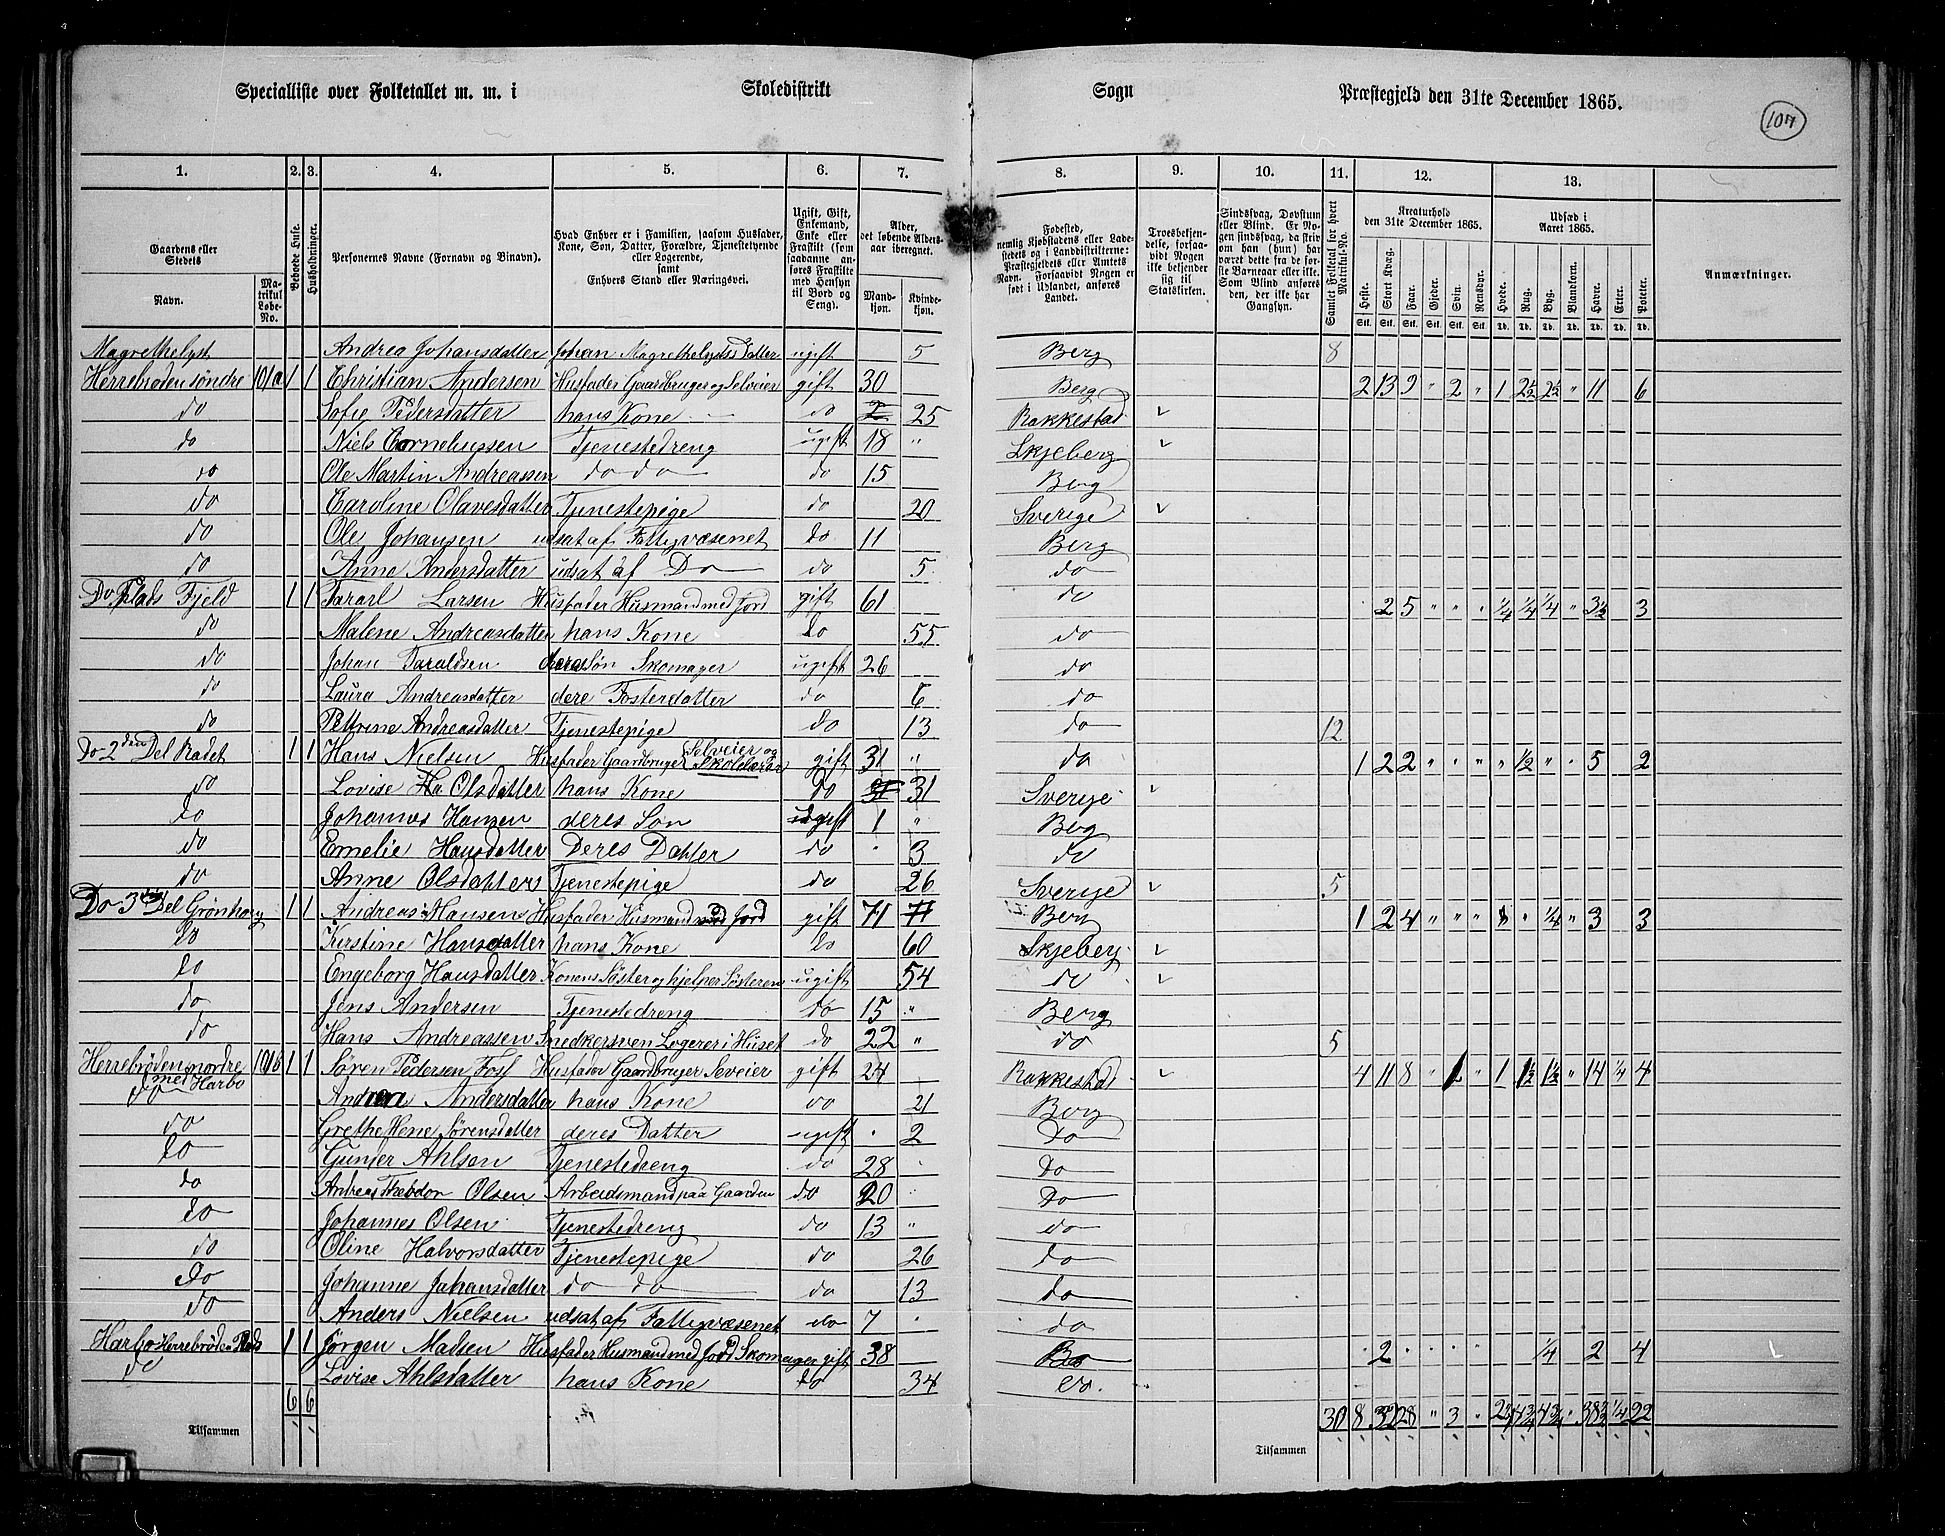 Specialliste over Folketallet m. m. i Skoledistrikt Sogn Præstegjeld den 31te December 1865.
107
1. 2. 3. 4. 5. 6. 7. 8. 9. 10. 11. 12. 13.
Gaardens eller Stedets Navn. Matrikul Løbe-No. Beboede Huse. Husholdninger. Personernes Navne (Fornavn og Binavn). Hvad Enhver er i Familien, saasom Husfader, Kone, Søn, Datter, Forældre, Tjenestetyende eller Logerende, samt Enhvers Stand eller Næringsvei. Ugift, Gift, Enkemand, Enke eller Fraskilt (som saadanne anføres Fraskilte med Hensyn til Bord og Seng). Alder, det løbende Aldersaar iberegnet. Mandkjøn. Kvindekjøn. Fødested, nemlig Kjøbstadens eller Ladestedets og i Landdistrikterne: Præstegjeldets eller Amtets Navn. Forsaavidt Nogen er født i Udlandet, anføres Landet. Troesbekjendelse, forsaavidt Nogen ikke bekjender sig til Statskirken. Sindssvag, Døvstum eller Blind. Er Nogen sindssvag, da skrives om han (hun) har været dette fra de første Barneaar eller ikke. Som Blind anføres den, der ikke har Gangsyn. Samlet Folketal for hvert Matrikul-No. Kreaturhold den 31te December 1865. Heste. Stort Kvæg. Faar. Gjeder. Svin. Rensdyr. Udsæd i Aaret 1865. Hvede. Rug. Byg. Blandkorn. Havre. Erter. Poteter. Anmærkninger.
Magrethelyst Andrea Johansdatter Johan Magrethelysts Datter ugift 5 Berg 8
Herrebrøden søndre 101a 1 1 Christian Andersen Husfader Gaardbruger og Selveier gift 30 Berg 2 13 9 " 2 " 1 2½ 2½ " 11 6
do Sofie Pedersdatter hans Kone do 25 Rakkestad
do Niels Corneliussen Tjenestedreng ugift 18 " Skjeberg
do Ole Martin Andreassen do do do 15 Berg
do Caroline Olavesdatter Tjenestepige do 20 Sverige
do Ole Johansen udsat af Fattigvæsenet do 11 Berg
do Anne Andersdatter udsat af Do do 5 do
Do Plads Fjeld 1 1 Tararl Larsen Husfader Husmand med Jord gift 61 do 2 5 " " " ¼ ¼ ¼ " 3½ 3
do Malene Andreasdatter hans Kone do 55 do
do Johan Taraldsen deres Søn Skomager ugift 26 do
do Laura Andreasdatter dere Fosterdatter do 6 do
do Pettrine Andreasdatter Tjenestepige do 13 do 12
Do 2den Del Radet 1 1 Hans Nielsen Husfader Gaardbruger Selveier og Skolelærer gift 31 " do 1 2 2 " " " " ½ " 5 2
do Lovise Olsdatter hans Kone do 31 Sverije
do Johannes Hansen deres Søn ugift 1 " Berg
do Emelie Hansdatter Deres Datter do 3 do
do Anne Olsdatter Tjenestepige do 26 Sverije 5
Do 3die Del Grønhaug 1 1 Andreas Hansen Husfader Husmand med Jord gift 71 Berg 1 2 4 " " " ¼ " 3 3
do Kirstine Hansdatter hans Kone do 60 Skjeberg
do Engeborg Hansdatter Konens Søster og hjelper Søsteren ugift 54 do
do Jens Andersen Tjenestedreng do 15 " Berg
do Hans Andreassen Snedkersven Logerer i Huset do 22 " do 5
Herrebrøden nordre med Harbo 101b 1 1 Søren Pedersen Foss Husfader Gaardbruger Seveier gift 24 Rakkestad 4 11 8 " 1 " 1 1½ 1½ " 14 ¼ 4
do Andrea Andersdatter hans Kone do 21 Berg
do Grethe Helene Sørensdatter deres Datter ugift 2 Do
do Gunder Ahlsen Tjenestedreng do 28 Do
do Andreas Thebdor Olsen Arbeidsmand paa Gaarden do 20 Do
do Johannes Olsen Tjenestedreng do 13 " do
do Oline Halvorsdatter Tjenestepige do 26 do
do Johanne Johansdatter do do do 13 do
do Anders Nielsen udsat af Fattigvæsenet do 7 do
Harbo Herrebrøden Plads 1 1 Jørgen Madsen Husfader Husmand med Jord Skomager gift 38 Do 2 ¼ 2 4
do Lovise Ahlsdatter hans Kone do 34 do
6 6
Tilsammen
Tilsammen 30 8 32 28 " 3 " 2¼ 4¾ 4¾ " 38½ ¼ 22